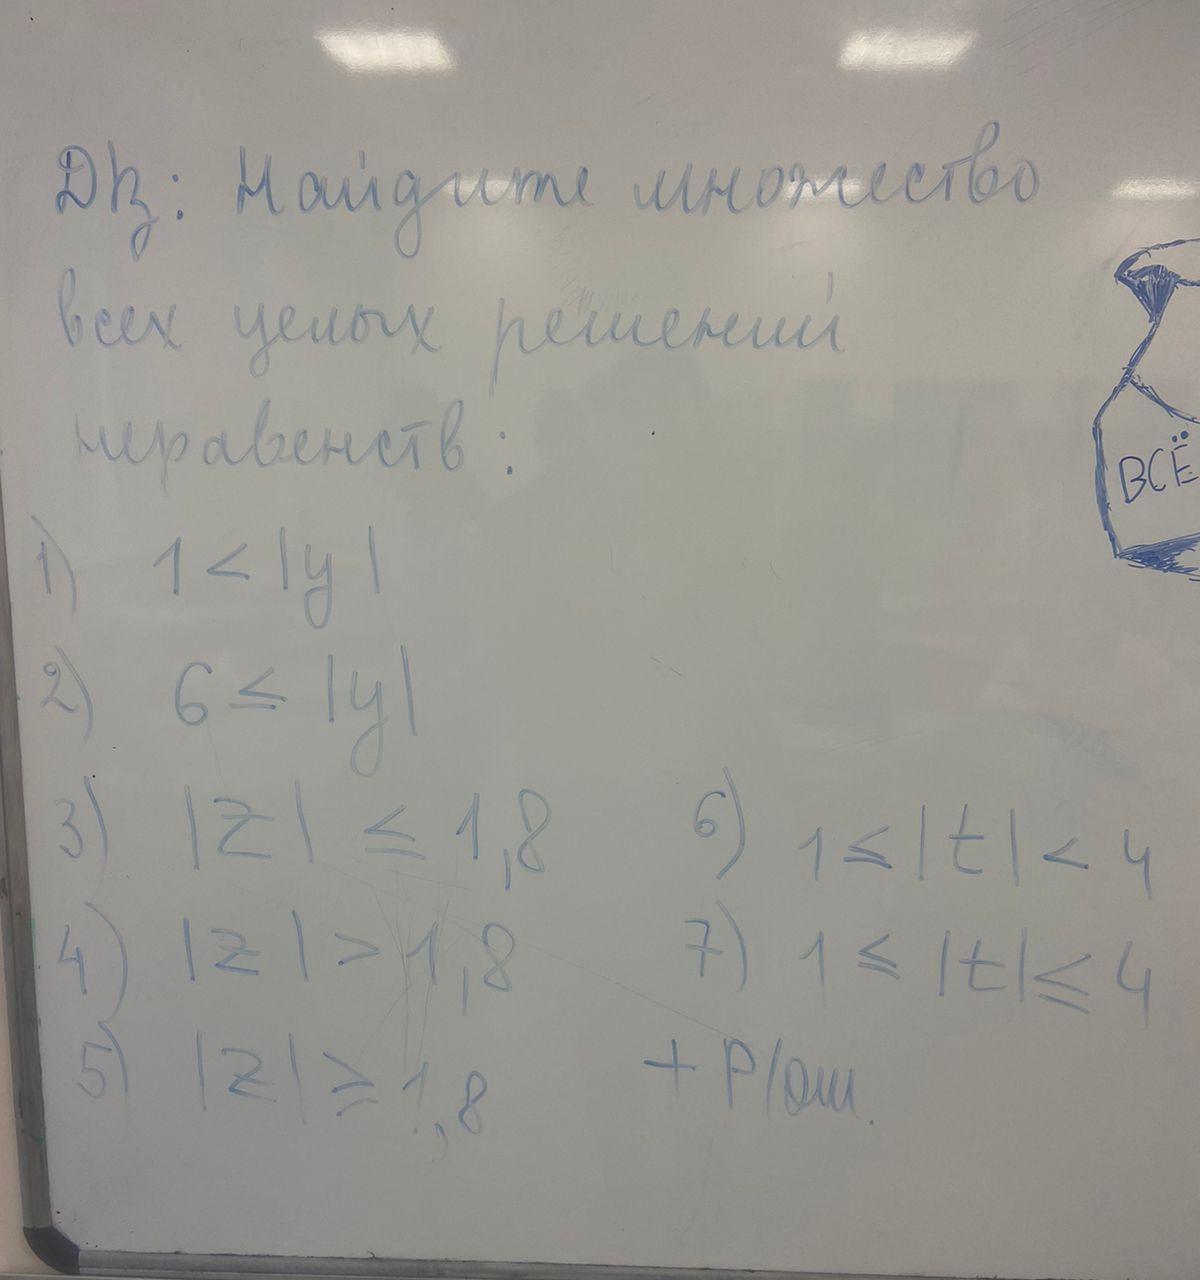 Дз: Найдите множество
всех целых решений
неравенств:
1) 1 < |y|
2) 6 ≤ |y|
3) |z| ≤ 1,8
4) |z| > 1,8
5) |z| ≥ 1,8
6) 1 ≤ |t| < 4
7) 1 ≤ |t| ≤ 4
+ Р/ош.
ВСЁ